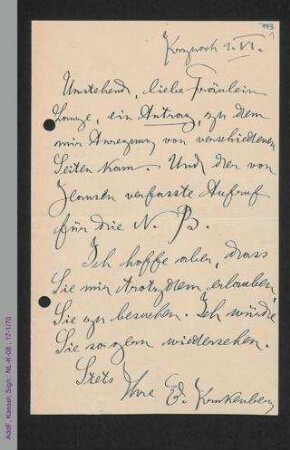 1. VI.
Umstehend, liebe Fräulein
Lange, ein Antrag, zu dem
mir Anregung von verschiedenen
Seiten kam. Und der von
verfasste Aufruf
für die N. B.
Ich hoffe aber, dass
Sie mir trotzdem erlauben
Sie zu besuchen. Ich würde
Sie so gern wiedersehen.
Stets
Ihre E.
AddF, Kassel, Sign.: NL-K-08 ; 17-1/70